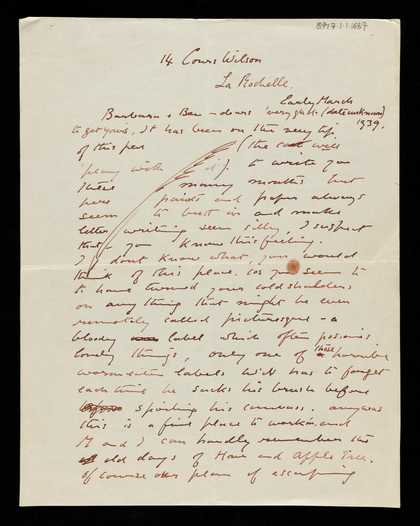 14 Cours Wilson
La Rochelle.
Early March
(date unknown)
1939.
Barbara & Ben - dears very glad
to get yours, It has been on the very tip
of this pen (the cat will
play with it). to write you
these many months but
paints and paper always
seem to butt in and make
letter writing seem silly, I suspect
that you know this feeling.
I don't know what you would
think of this place. for you seem to
to have turned your cold shoulders
on any thing that might be even
remotely called picturesque - a
bloody label which often poisons
lovely things, only one of these horrible
labels Wich has to forget
each time he sucks his brush before
spoiling his canvass. anyway
this is a fine place to work in and
M and I can hardly remember the
old days of Hove and Apple Tree.
Of course our plans of